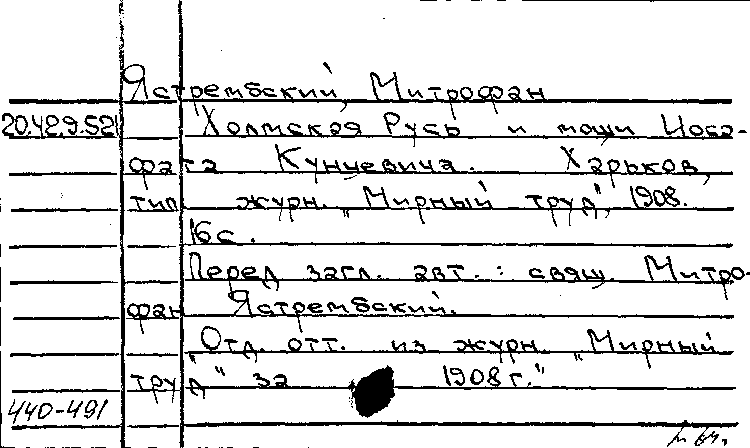 Ястрембский, Митрофан
20.42.9.521 Холмская Русь и мощи Иоса-
фата Кунцевича. Харьков,
тип. журн. „Мирный труд", 1908.
16с.
Перед загл. авт.: свящ. Митро-
фан Ястрембский.
„Отд. отт. из журн. „Мирный
труд" за 1908г."
440-491